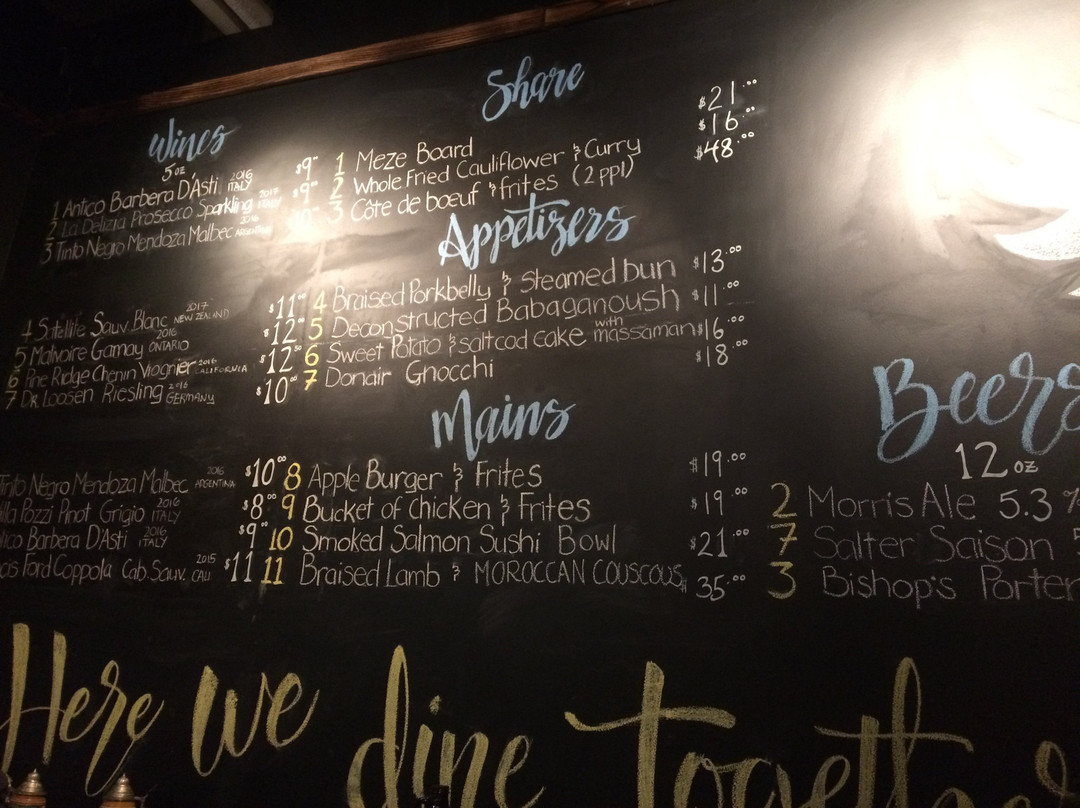 Wines
5 oz
1 Antico Barbera D'Asti 2016 ITALY $9
2 La Delizia Prosecco Sparkling 2017 ITALY $9
3 Tinto Negro Mendoza Malbec 2016 ARGENTINA
4 Satellite Sauv. Blanc 2017 NEW ZEALAND $11
5 Malvoire Gamay 2016 ONTARIO $12
6 Pine Ridge Chenin Viognier 2016 CALIFORNIA $12
7 Dr. Loosen Riesling 2016 GERMANY $10.00
Tinto Negro Mendoza Malbec 2016 ARGENTINA $10.00
Pozzi Pinot Grigio 2016 ITALY $8.00
Barbera D'Asti 2016 ITALY $9
Ford Coppola Cab. Sauv. 2015 CALI $11
Share
1 Meze Board $21.00
2 Whole Fried Cauliflower & Curry $16.00
3 Côte de boeuf & frites (2 ppl) $48.00
Appetizers
4 Braised Porkbelly & Steamed bun $13.00
5 Deconstructed Babaganoush $11.00
6 Sweet Potato & saltcod cake with massaman $16.00
7 Donair Gnocchi $18.00
Mains
8 Apple Burger & Frites $19.00
9 Bucket of chicken & Frites $19.00
10 Smoked Salmon Sushi Bowl $21.00
11 Braised Lamb & MOROCCAN COUSCOUS $35.00
Beers
12 oz
2 Morris Ale 5.3 %
7 Salter Saison 5
3 Bishop's Porter
Here we dine togeth